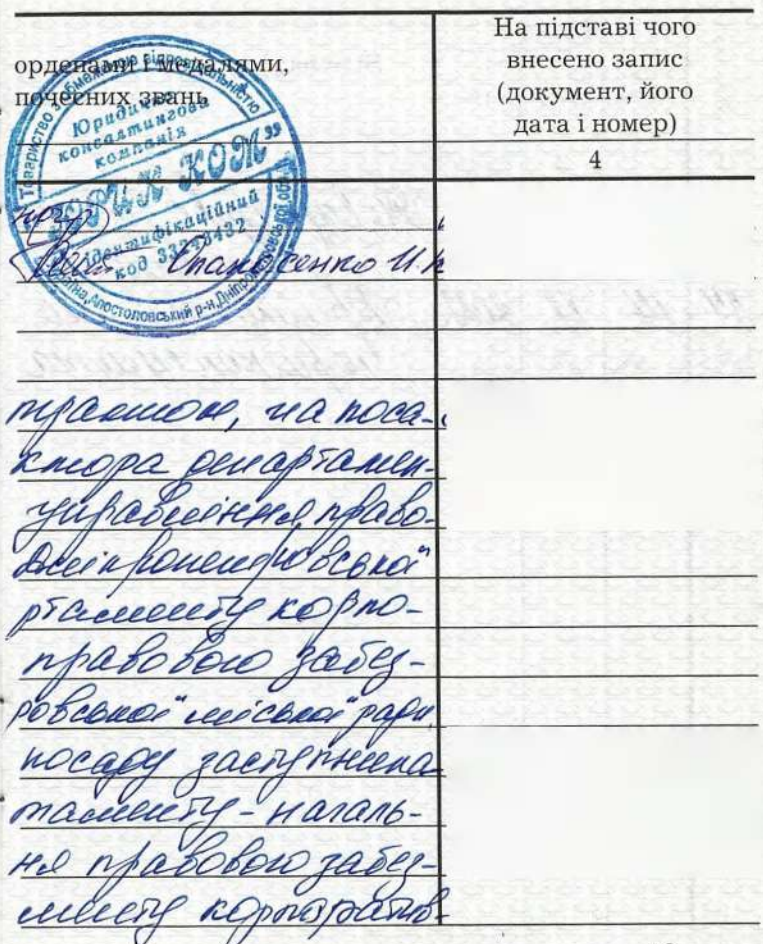 орденами і медалями,
почесних звань
На підставі чого
внесено запис
(документ, його
дата і номер)
4
Товариство з обмеженою відповідальністю
Юридична
консалтингова
компанія
КОМ"
Ідентифікаційний
код
Апостоловський р-н, Дніпропетровської обл.
на поса-
ктора департамен-
управління право-
Дніпропетровської
ртаменту корпо-
правового забез-
ровської міської ради,
посаду заступника
таменту - началь-
ня правового забез-
менту корпоратив-